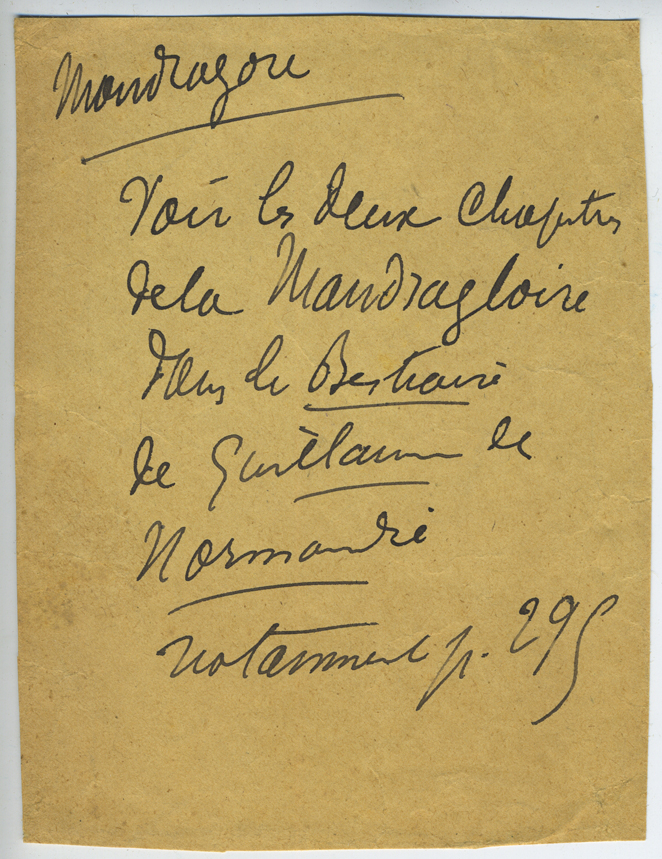 Mandragore
Voir les deux Chapitres
de la Mandragloire
dans le Bestiaire
de Guillaume de
Normandie
notamment p. 295